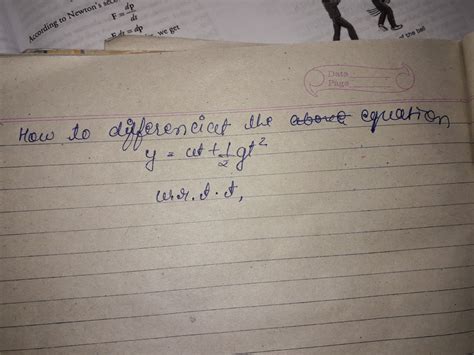 According to Newton's seco
F = dp/dt
F dt = dp we get
of the bal
Data
Page
How to differenciat the above equation
y = ut + 1/2 gt²
w.r.t.t,